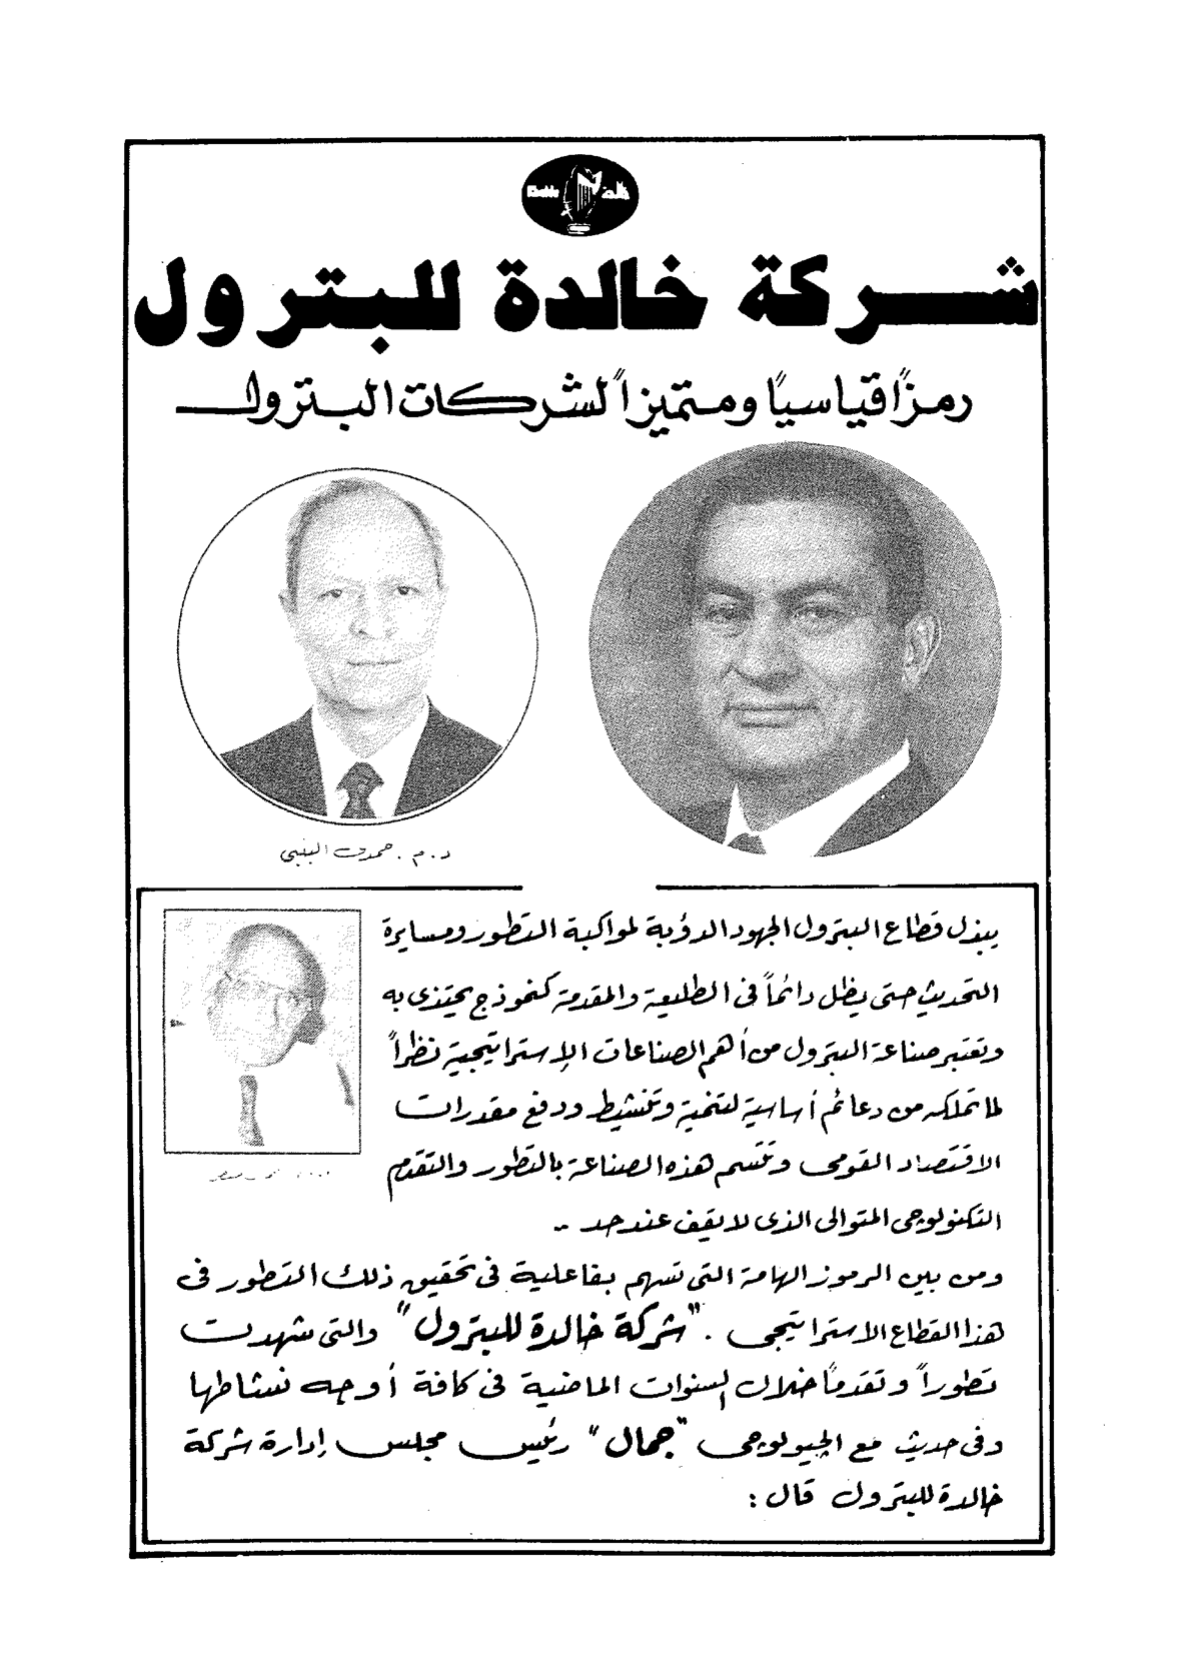 خالدة
شركة خالدة للبترول
رمزاً قياسياً ومتميزاً لشركات البترول
د.م. حمدى البنبى
يبذل قطاع البترول الجهود الدؤبة لمواكبة التطور ومسايرة
التحديث حتى يظل دائماً فى الطليعة والمقدمة كنموذج يحتذى به
وتعتبر صناعة البترول من أهم الصناعات الإستراتيجية نظراً
لما تملكه من دعائم أساسية لتنمية وتنشيط ودفع مقدرات
الاقتصاد القومى وتتسم هذه الصناعة بالتطور والتقدم
التكنولوجى المتوالى الذى لا يقف عند حد ..
ومن بين الرموز الهامة التى تسهم بفاعلية فى تحقيق ذلك التطور فى
هذا القطاع الاستراتيجى . "شركة خالدة للبترول" والتى شهدت
تطوراً وتقدماً خلال السنوات الماضية فى كافة أوجه نشاطها
وفى حديث مع الجيولوجى "جمال" رئيس مجلس إدارة شركة
خالدة للبترول قال :